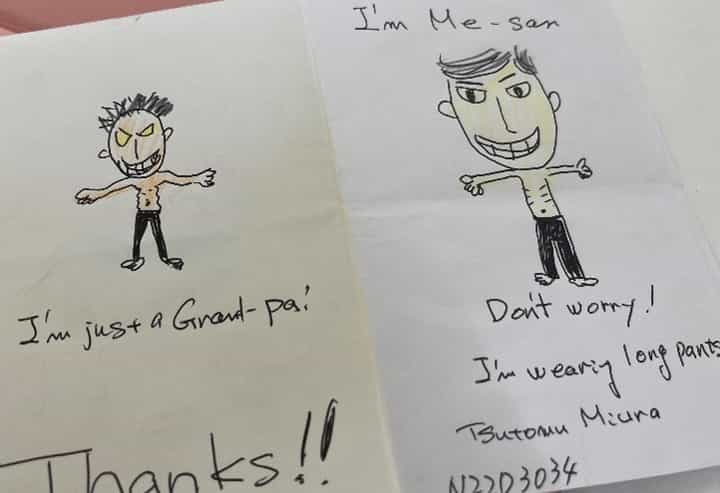 I'm just a Grand-pa!
Thanks!!
I'm Me-san
Don't worry!
I'm wearing long pants
Tsutomu Miura
N2203034